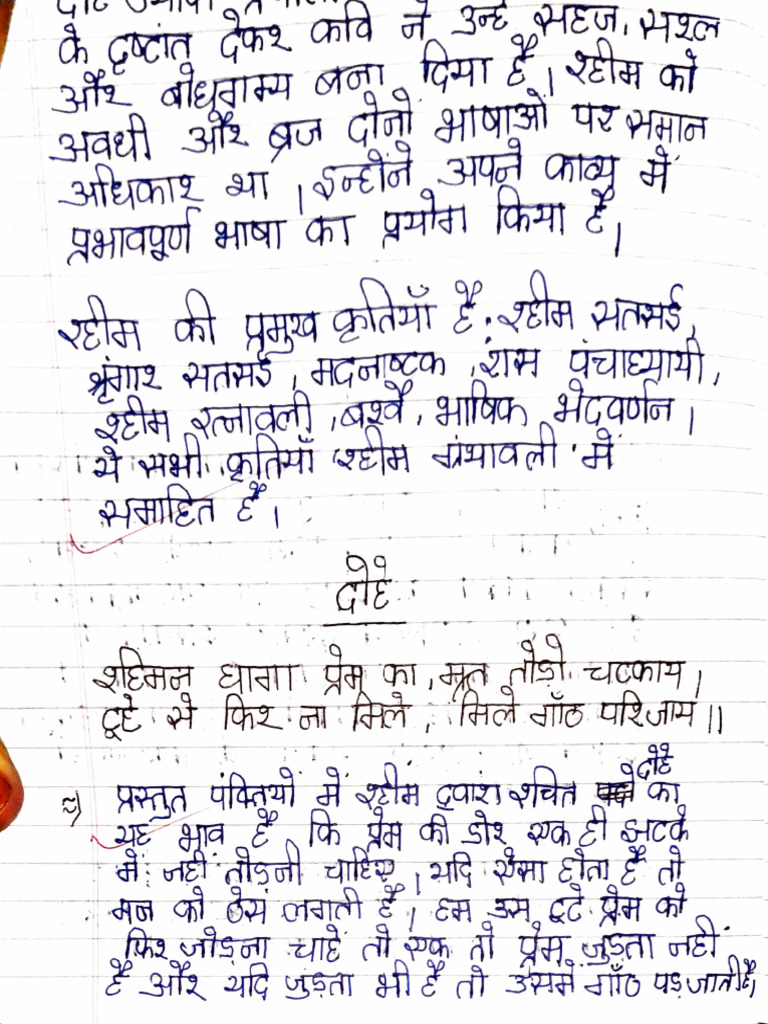 के दृष्टांत देकर कवि ने उन्हें सहज, सरल
और बोधगम्य बना दिया है। रहीम को
अवधी और ब्रज दोनों भाषाओं पर समान
अधिकार था। इन्होंने अपने काव्य में
प्रभावपूर्ण भाषा का प्रयोग किया है।
रहीम की प्रमुख कृतियाँ है. रहीम सतसई,
श्रृंगार सतसई, मदनाष्टक, रास पंचाध्यायी,
रहीम रत्नावली, बरवै, भाषिक भेदवर्णन।
ये सभी कृतियाँ 'रहीम ग्रंथावली' में
समाहित है।
दोहे
रहिमन धागा प्रेम का, मत तोड़ो चटकाय।
टूटे से फिर ना मिले, मिले गाँठ परिजाय॥
प्रस्तुत पंक्तियों में रहीम द्वारा रचित दोहे का
यह भाव है कि प्रेम की डोर एक ही झटके
में नहीं तोड़नी चाहिए, यदि ऐसा होता है तो
मन को ठेस लगती है। हम उस टूटे प्रेम को
फिर जोड़ना चाहे तो एक तो प्रेम जुड़ता नहीं
है और यदि जुड़ता भी है तो उसमें गाँठ पड़ जाती है,